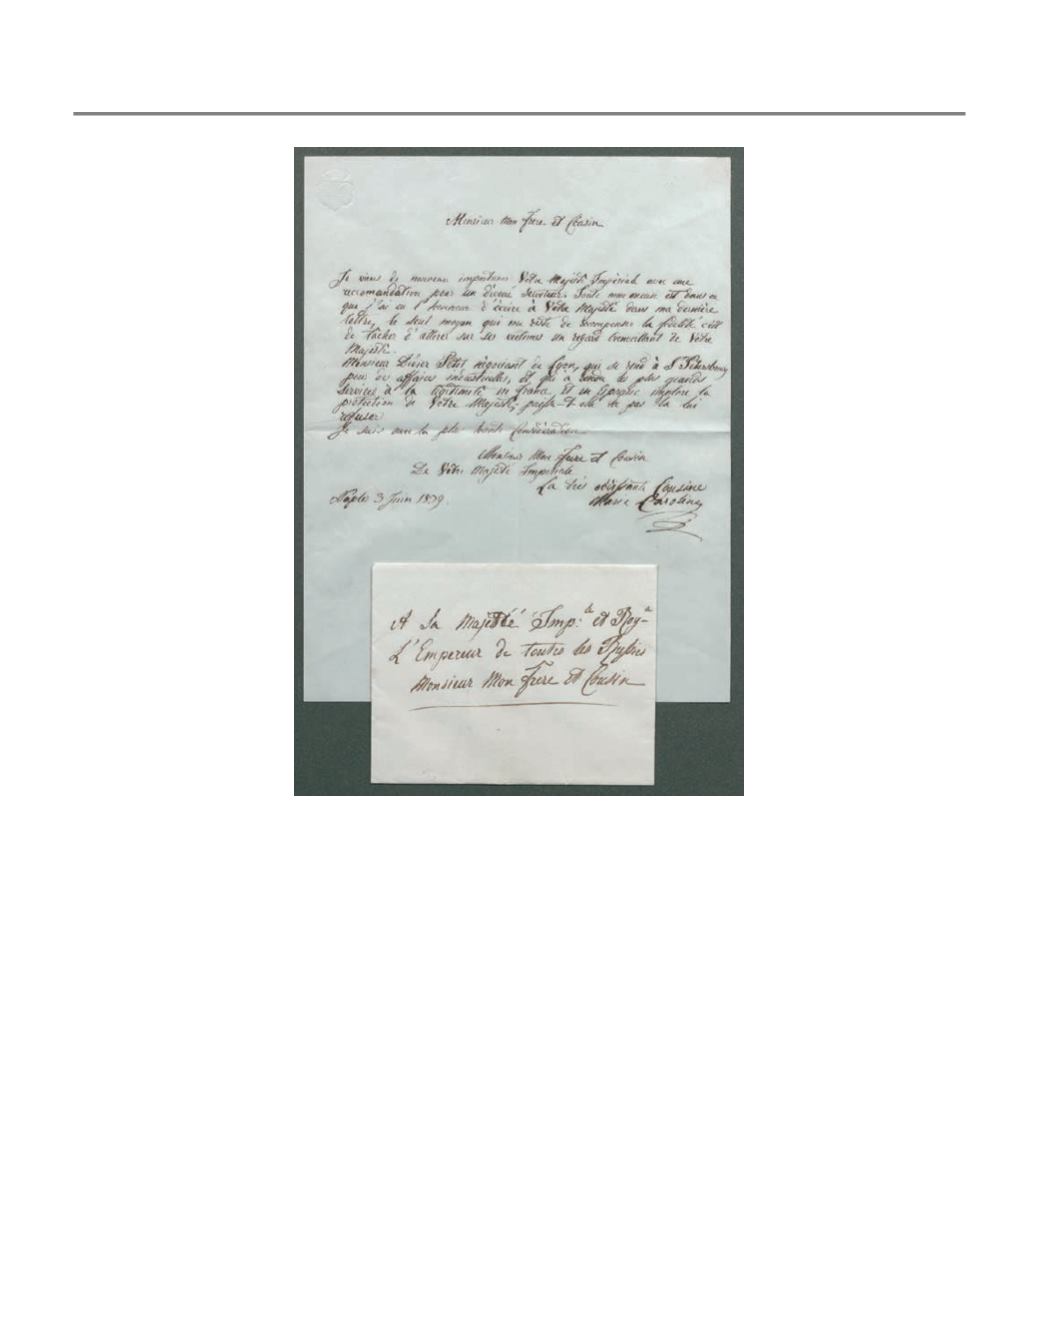 Monsieur Mon Frere et Cousin
Je viens de nouveau importuner Votre Majesté Impériale avec une
recomandation pour un dévoué serviteur. Toute mon excuse est dans ce
que j'ai eu l'honneur d'écrire à Votre Majesté dans ma dernière
lettre, le seul moyen qui me reste de recompenser la fidelité c'est
de tacher d'attirer sur ses victimes un regard bienveillant de Votre
Majesté.
Monsieur Didier Petit négociant de Lyon, qui se rend à St Petersbourg
pour des affaires industrielles, et qui a rendu les plus grands
services à la légitimité en France et en Espagne implore la
protection de Votre Majesté, puisse-t-elle ne pas la lui
refuser
Je suis avec la plus haute Considération
Monsieur Mon Frere et Cousin
De Votre Majesté Imperiale
La très affectionnée Cousine
Naples 3 Juin 1839.
Marie Caroline
A Sa Majesté Imp: le et Roy-
L'Empereur de toutes les Russies
Monsieur Mon Frere et Cousin